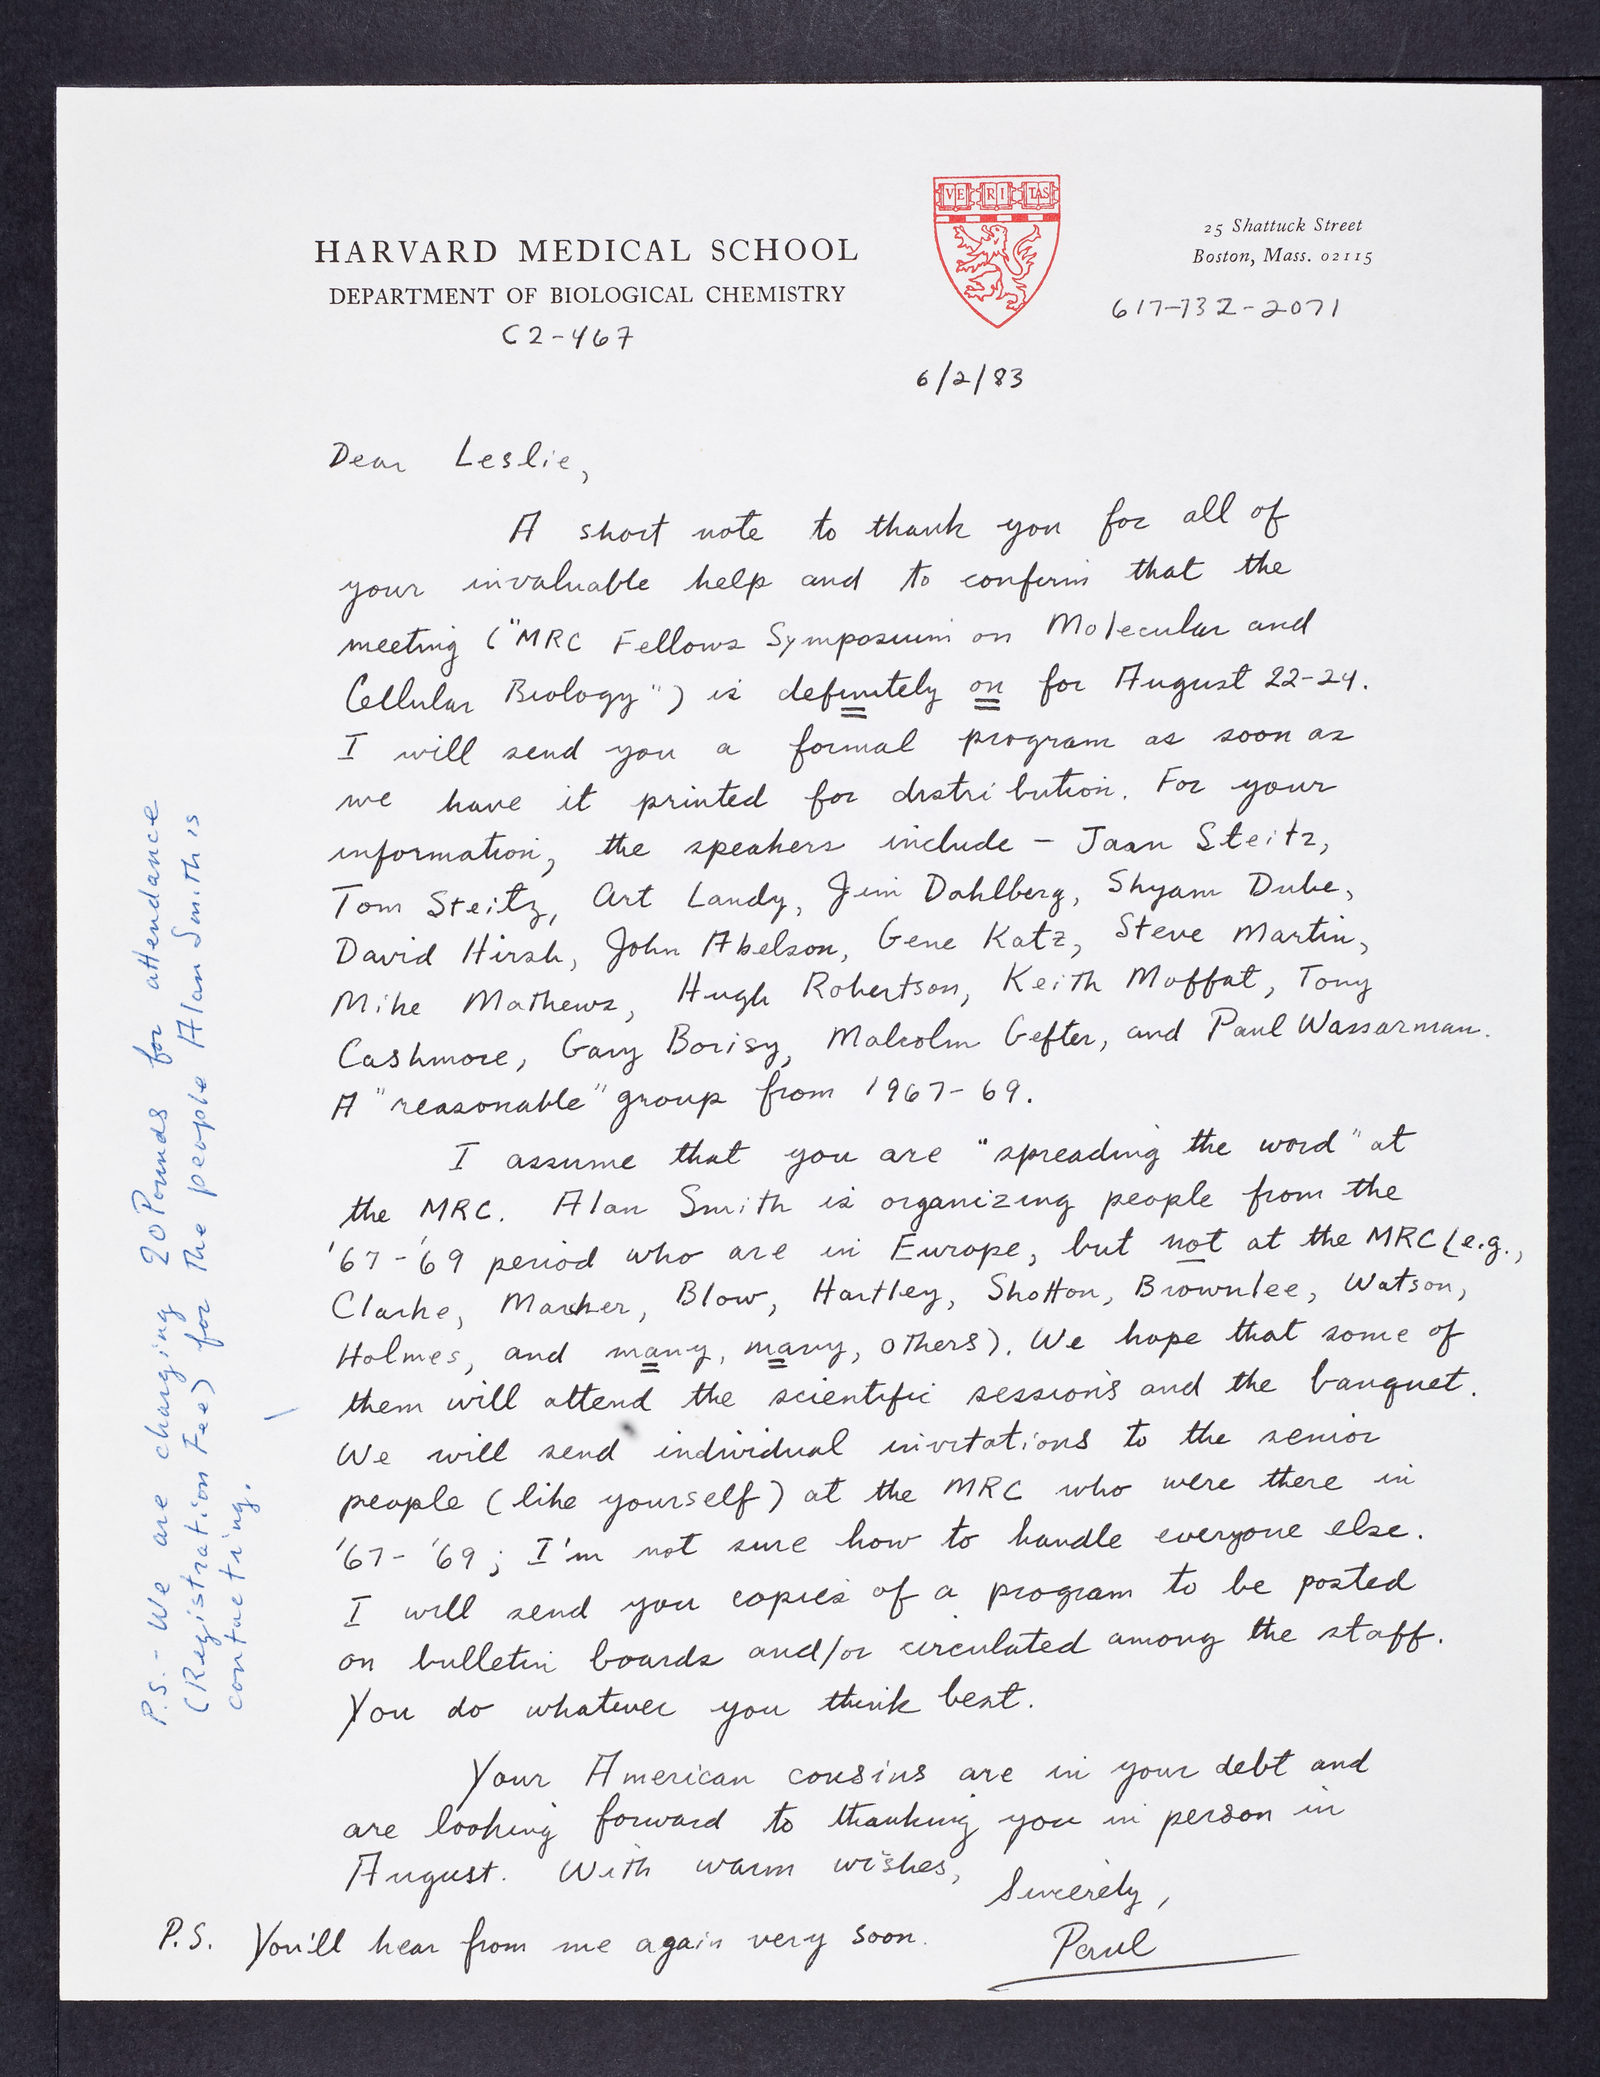 HARVARD MEDICAL SCHOOL
DEPARTMENT OF BIOLOGICAL CHEMISTRY
C2-467
VE RI TAS
25 Shattuck Street
Boston, Mass. 02115
617-732-2071
6/2/83
Dear Leslie,
A short note to thank you for all of
your invaluable help and to confirm that the
meeting ("MRC Fellows Symposium on Molecular and
Cellular Biology") is definitely on for August 22-24.
I will send you a formal program as soon as
we have it printed for distribution. For your
information, the speakers include - Joan Steitz,
Tom Steitz, Art Landy, Jim Dahlberg, Shyam Dube,
David Hirsh, John Abelson, Gene Katz, Steve Martin,
Mike Mathews, Hugh Robertson, Keith Moffat, Tony
Cashmore, Gary Borisy, Malcolm Gefter, and Paul Wassarman.
A "reasonable" group from 1967-69.
I assume that you are "spreading the word" at
the MRC. Alan Smith is organizing people from the
'67-'69 period who are in Europe, but not at the MRC (e.g.,
Clarke, Marcker, Blow, Hartley, Shotton, Brownlee, Watson,
Holmes, and many, many, others). We hope that some of
them will attend the scientific sessions and the banquet.
We will send individual invitations to the senior
people (like yourself) at the MRC who were there in
'67-'69; I'm not sure how to handle everyone else.
I will send you copies of a program to be posted
on bulletin boards and/or circulated among the staff.
You do whatever you think best.
Your American cousins are in your debt and
are looking forward to thanking you in person in
August. With warm wishes,
Sincerely,
Paul
P.S. You'll hear from me again very soon.
P.S. - We are charging 20 Pounds for attendance
(Registration Fee) for the people Alan Smith is
contacting.